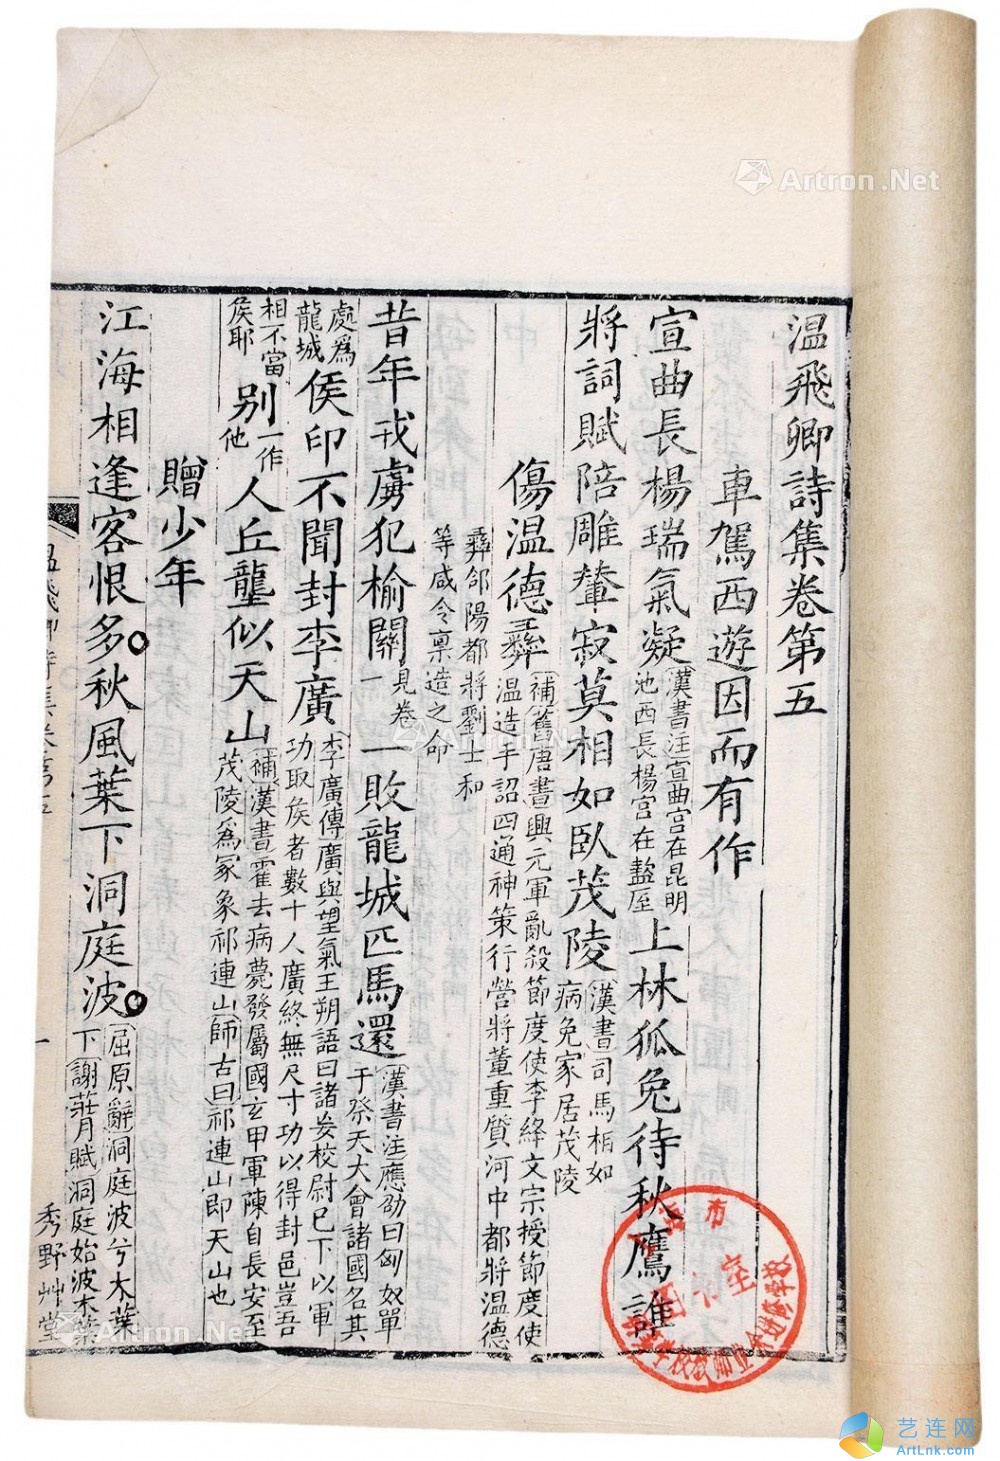 温飛卿詩集卷第五
車駕西遊因而有作
宣曲長楊瑞氣凝漢書注宣曲宮在昆明池西長楊宮在盩厔上林狐兔待秋鷹誰
將詞賦陪雕輦寂莫相如臥茂陵漢書司馬相如病免家居茂陵
傷温德彝補舊唐書興元軍亂殺節度使李絳文宗授節度使温造手詔四通神策行營將董重質河中都將温德
彝郃陽都將劉士和等咸令禀造之命
昔年戎虜犯榆關見卷一一敗龍城匹馬還漢書注應劭曰匈奴單于祭天大會諸國名其
處爲龍城侯印不聞封李廣李廣傳廣與望氣王朔語曰諸妄校尉已下以軍功取侯者數十人廣終無尺寸功以得封邑豈吾
相不當侯耶別一作他人丘壟似天山補漢書霍去病薨發屬國玄甲軍陳自長安至茂陵爲冢象祁連山師古曰祁連山即天山也
贈少年
江海相逢客恨多秋風葉下洞庭波屈原辭洞庭波兮木葉下謝莊月賦洞庭始波木葉
温飛卿詩集卷第五
一
秀野艸堂
Artron.Net
Artron.Net
艺连网
ArtLnk.com